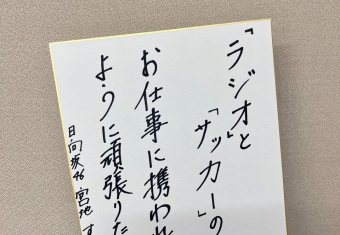 「ラジオ」と
「サッカー」の
お仕事に携われ
ように頑張りた
日向坂46 宮地 す